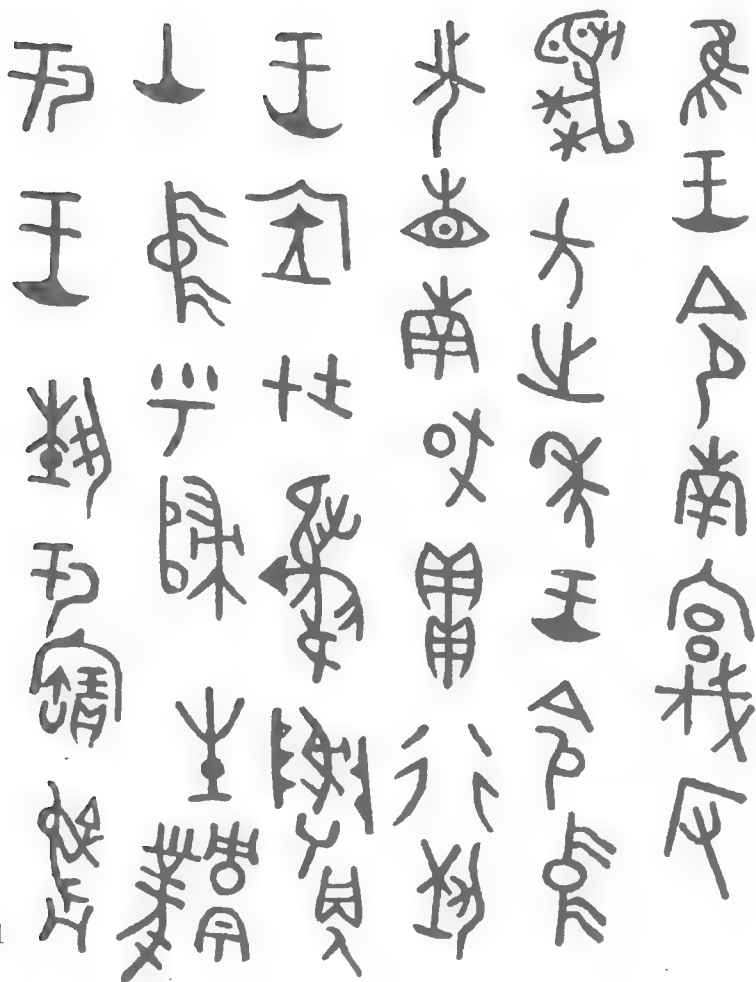 隹王令南宮伐反
虎方之年王令中
先省南或串行埶
王㕇在夔真
山中乎歸生鳳
于王埶于寶彝